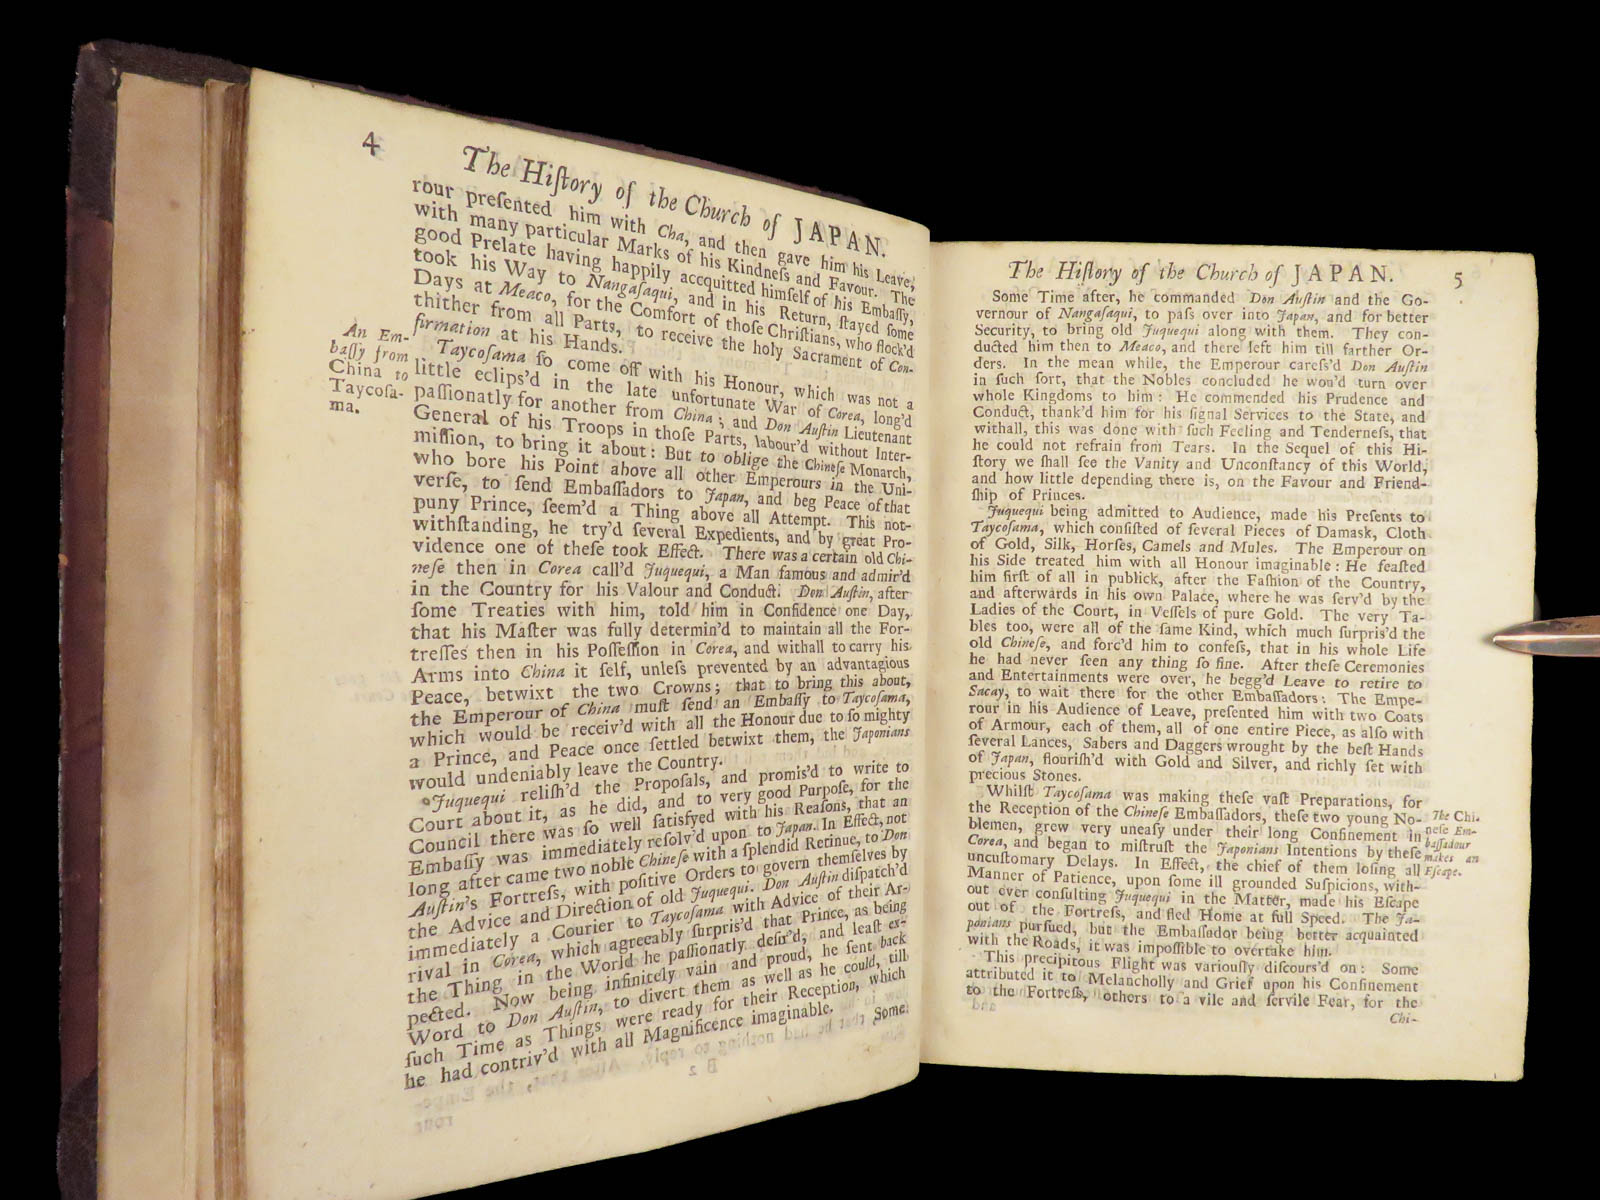 4
The Hiſtory of the Church of JAPAN.
rour preſented him with Cha, and then gave him his Leave,
with many particular Marks of his Kindneſs and Favour. The
good Prelate having happily accquitted himſelf of his Embaſſy,
took his Way to Nangaſaqui, and in his Return, ſtayed ſome
Days at Meaco, for the Comfort of thoſe Chriſtians, who flock'd
thither from all Parts, to receive the holy Sacrament of Con-
firmation at his Hands.
An Em-
baſſy from
China to
Taycoſa-
ma.
Taycoſama ſo come off with his Honour, which was not a
little eclips'd in the late unfortunate War of Corea, long'd
paſſionatly for another from China; and Don Auſtin Lieutenant
General of his Troops in thoſe Parts, labour'd without Inter-
miſſion, to bring it about: But to oblige the Chineſe Monarch,
who bore his Point above all other Emperours in the Uni-
verſe, to ſend Embaſſadors to Japan, and beg Peace of that
puny Prince, ſeem'd a Thing above all Attempt. This not-
withſtanding, he try'd ſeveral Expedients, and by great Pro-
vidence one of theſe took Effect. There was a certain old Chi-
neſe then in Corea call'd Juquequi, a Man famous and admir'd
in the Country for his Valour and Conduct. Don Auſtin, after
ſome Treaties with him, told him in Confidence one Day,
that his Maſter was fully determin'd to maintain all the For-
treſſes then in his Poſſeſſion in Corea, and withall to carry his
Arms into China it ſelf, unleſs prevented by an advantagious
Peace, betwixt the two Crowns; that to bring this about,
the Emperour of China muſt ſend an Embaſſy to Taycoſama,
which would be receiv'd with all the Honour due to ſo mighty
a Prince, and Peace once ſettled betwixt them, the Japonians
would undeniably leave the Country.
Juquequi reliſh'd the Propoſals, and promis'd to write to
Court about it, as he did, and to very good Purpoſe, for the
Council there was ſo well ſatisfyed with his Reaſons, that an
Embaſſy was immediately reſolv'd upon to Japan. In Effect, not
long after came two noble Chineſe with a ſplendid Retinue, to Don
Auſtin's Fortreſs, with poſitive Orders to govern themſelves by
the Advice and Direction of old Juquequi. Don Auſtin diſpatch'd
immediately a Courier to Taycoſama with Advice of their Ar-
rival in Corea, which agreeably ſurpris'd that Prince, as being
the Thing in the World he paſſionatly deſir'd, and leaſt ex-
pected. Now being infinitely vain and proud, he ſent back
Word to Don Auſtin, to divert them as well as he could, till
ſuch Time as Things were ready for their Reception, which
he had contriv'd with all Magnificence imaginable.
Some
The Hiſtory of the Church of JAPAN.
5
Some Time after, he commanded Don Auſtin and the Go-
vernour of Nangaſaqui, to paſs over into Japan, and for better
Security, to bring old Juquequi along with them. They con-
ducted him then to Meaco, and there left him till farther Or-
ders. In the mean while, the Emperour careſs'd Don Auſtin
in ſuch ſort, that the Nobles concluded he wou'd turn over
whole Kingdoms to him: He commended his Prudence and
Conduct, thank'd him for his ſignal Services to the State, and
withall, this was done with ſuch Feeling and Tenderneſs, that
he could not refrain from Tears. In the Sequel of this Hi-
ſtory we ſhall ſee the Vanity and Unconſtancy of this World,
and how little depending there is, on the Favour and Friend-
ſhip of Princes.
Juquequi being admitted to Audience, made his Preſents to
Taycoſama, which conſiſted of ſeveral Pieces of Damask, Cloth
of Gold, Silk, Horſes, Camels and Mules. The Emperour on
his Side treated him with all Honour imaginable: He feaſted
him firſt of all in publick, after the Faſhion of the Country,
and afterwards in his own Palace, where he was ſerv'd by the
Ladies of the Court, in Veſſels of pure Gold. The very Ta-
bles too, were all of the ſame Kind, which much ſurpris'd the
old Chineſe, and forc'd him to confeſs, that in his whole Life
he had never ſeen any thing ſo fine. After theſe Ceremonies
and Entertainments were over, he begg'd Leave to retire to
Sacay, to wait there for the other Embaſſadors: The Empe-
rour in his Audience of Leave, preſented him with two Coats
of Armour, each of them, all of one entire Piece, as alſo with
ſeveral Lances, Sabers and Daggers wrought by the beſt Hands
of Japan, flouriſh'd with Gold and Silver, and richly ſet with
precious Stones.
Whilſt Taycoſama was making theſe vaſt Preparations, for
the Reception of the Chineſe Embaſſadors, theſe two young No-
blemen, grew very uneaſy under their long Confinement in
Corea, and began to miſtruſt the Japonians Intentions by theſe
uncuſtomary Delays. In Effect, the chief of them loſing all
Manner of Patience, upon ſome ill grounded Suſpicions, with-
out ever conſulting Juquequi in the Matter, made his Eſcape
out of the Fortreſs, and fled Home at full Speed. The Ja-
ponians purſued, but the Embaſſador being better acquainted
with the Roads, it was impoſſible to overtake him.
The Chi-
neſe Em-
baſſadour
makes an
Eſcape.
This precipitous Flight was variouſly diſcours'd on: Some
attributed it to Melancholly and Grief upon his Confinement
to the Fortreſs, others to a vile and ſervile Fear, for the
Chi-